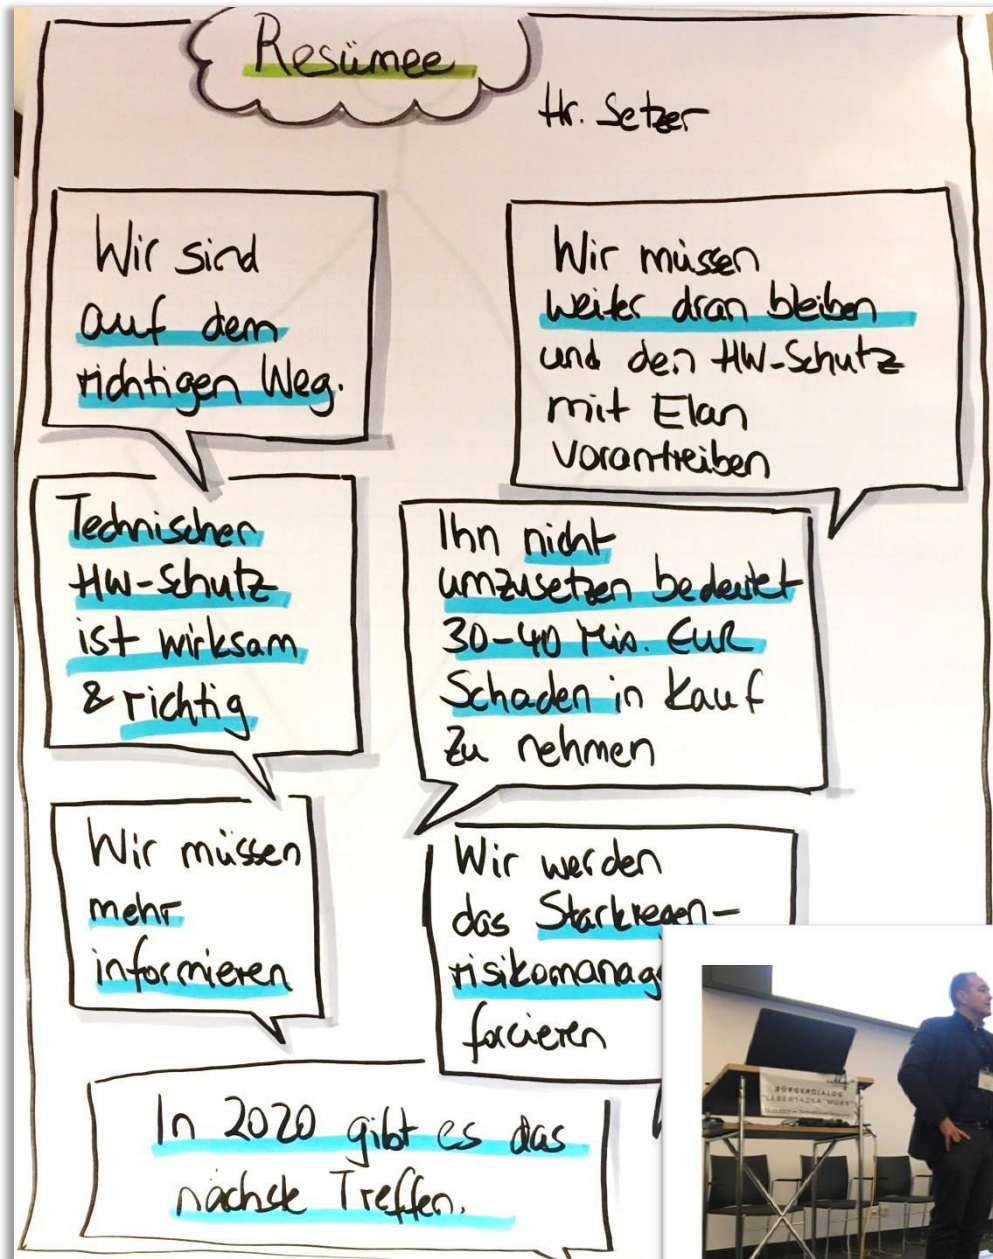 Resümee
Hr. Setzer
Wir sind
auf dem
richtigen Weg.
Wir müssen
weiter dran bleiben
und den HW-Schutz
mit Elan
vorantreiben
Technischer
HW-Schutz
ist wirksam
& richtig
Ihn nicht
umzusetzen bedeutet
30-40 Mio. EUR
Schaden in Kauf
zu nehmen
Wir müssen
mehr
informieren
Wir werden
das Starkregen-
risikomanag
forcieren
In 2020 gibt es das
nächste Treffen.
BÜRGERDIALOG